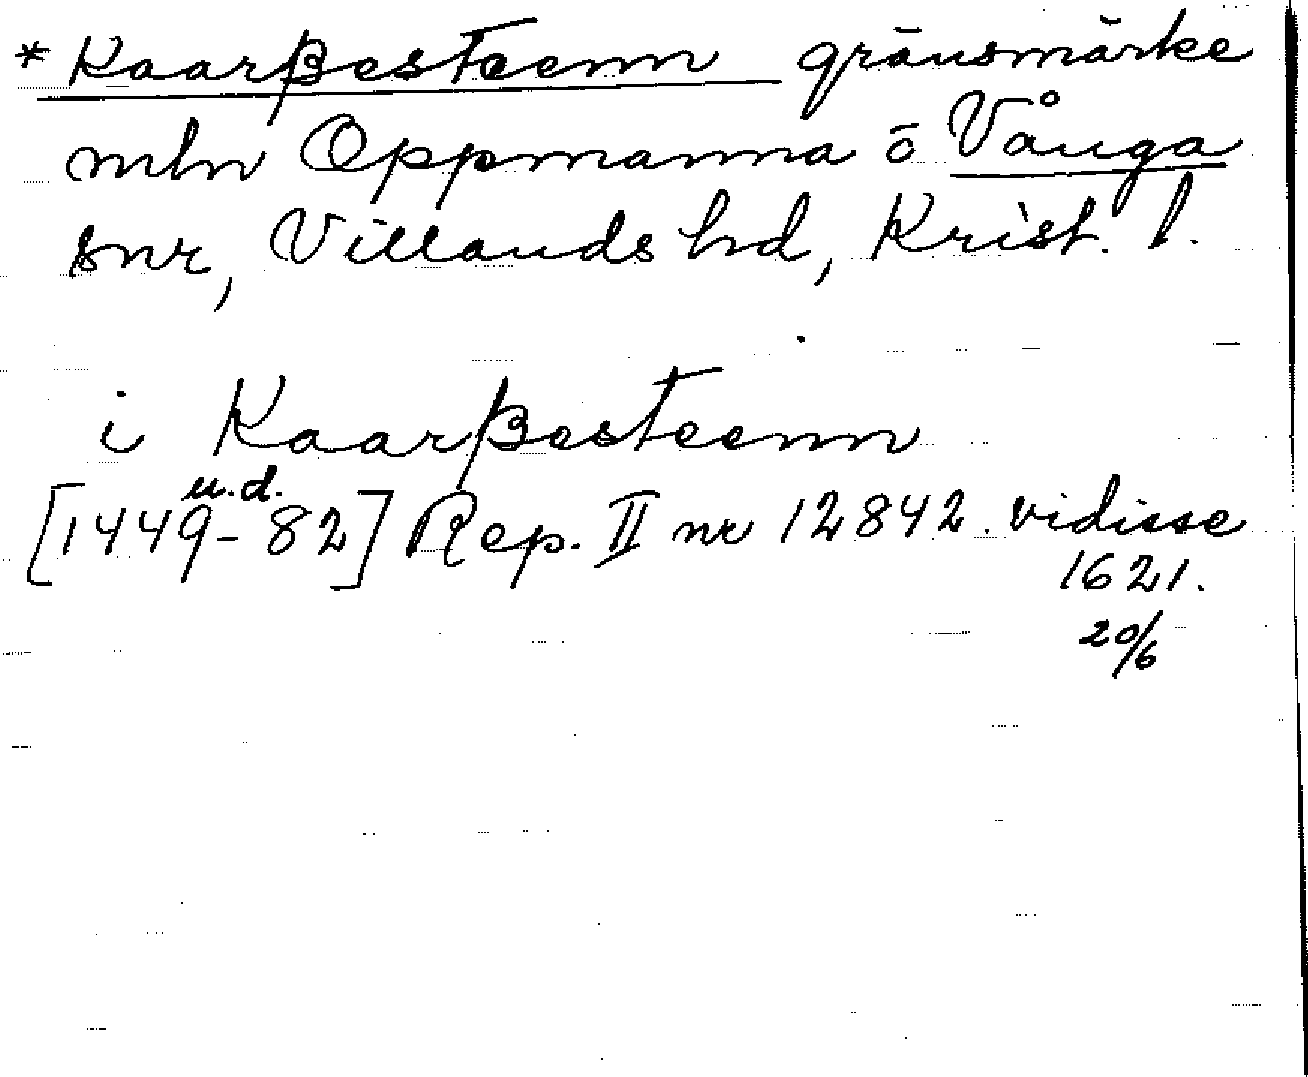 * Kaarßesteenn gränsmärke
mln Oppmanna ö Vånga
snr, Villands hd, Krist. l.
i Kaarßesteenn
u.d.
[1449-82] Rep. II nr 12842. vidisse
1621.
20/6